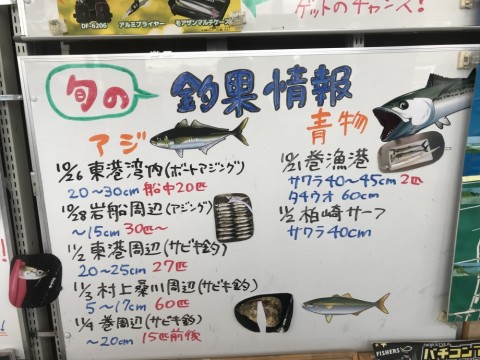 ゲットのチャンス!
DF-6206
アルミプライヤー
モアザンマルチケース
旬の
釣果情報
アジ
10/26 東港湾内(ボートアジング)
20〜30cm 船中20匹
10/28 岩船周辺(アジング)
〜15cm 30匹〜
11/2 東港周辺(サビキ釣)
20〜25cm 27匹
11/3 村上桑川周辺(サビキ釣)
5〜17cm 60匹
11/4 巻周辺(サビキ釣)
〜20cm 15匹前後
青物
10/21 巻漁港
サワラ40〜45cm 2匹
タチウオ 60cm
11/2 柏崎サーフ
サワラ40cm
FISHERS